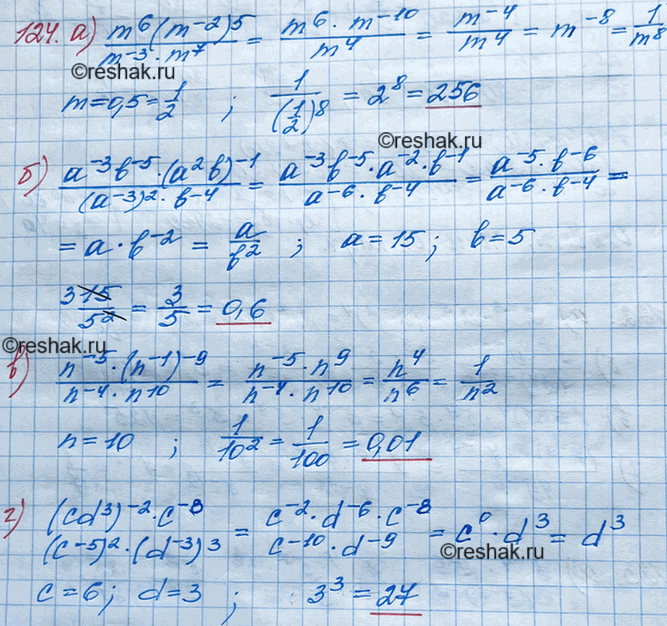 124. а) m⁶(m⁻²)⁵/(m⁻³·m⁷) = m⁶·m⁻¹⁰/m⁴ = m⁻⁴/m⁴ = m⁻⁸ = 1/m⁸
©reshak.ru
m=0,5=1/2 ; 1/(1/2)⁸ = 2⁸ = 256
©reshak.ru
б) a⁻³b⁻⁵·(a²b)⁻¹/((a⁻³)²·b⁻⁴) = a⁻³b⁻⁵·a⁻²·b⁻¹/(a⁻⁶·b⁻⁴) = a⁻⁵·b⁻⁶/(a⁻⁶·b⁻⁴) =
= a·b⁻² = a/b² ; a=15; b=5
3 15/5² = 3/5 = 0,6
©reshak.ru
в) n⁻⁵·(n⁻¹)⁻⁹/(n⁻⁴·n¹⁰) = n⁻⁵·n⁹/(n⁻⁴·n¹⁰) = n⁴/n⁶ = 1/n²
n=10 ; 1/10² = 1/100 = 0,01
г) (cd³)⁻²·c⁻⁸/((c⁻⁵)²·(d⁻³)³) = c⁻²·d⁻⁶·c⁻⁸/(c⁻¹⁰·d⁻⁹) = c⁰·d³ = d³
©reshak.ru
c=6; d=3 ; 3³ = 27